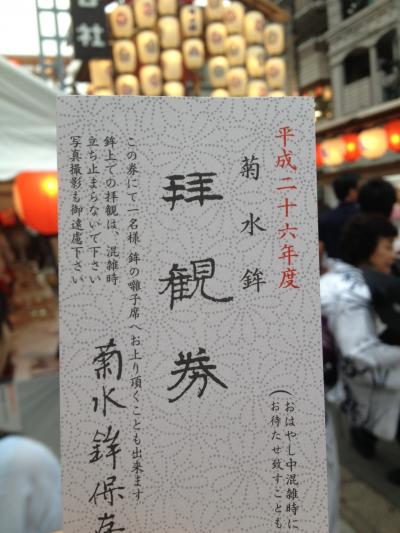 平成二十六年度
菊水鉾
(おはやし中混雑時に
お待たせ致すことも
拝観券
この券にて一名様 鉾の囃子席へお上り頂くことも出来ます
鉾上での拝観は、混雑時
立ち止まらないで下さい
写真撮影も御遠慮下さい
菊水鉾保存